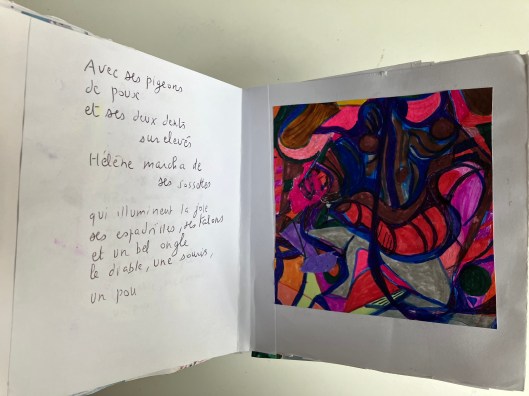 Avec ses pigeons
de poux
et ses deux dents
sur elevés
Hélène marcha de
ses
qui illuminent la joie
ses espadrilles, ses talons
et un bel ongle
le diable, une souris,
un pou